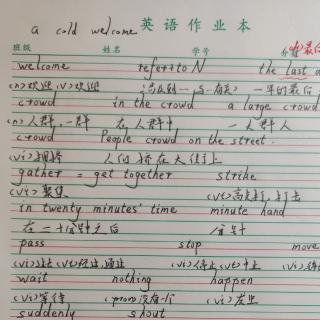 a cold welcome 英语作业本
班级 姓名 学号
welcome refer to N the last
(n)欢迎 (v)欢迎 一年的最后
crowd in the crowd a large crowd
(n)人群,一群 在人群中 一大群人
crowd People crowd on the street.
(vi)拥挤 人们挤在大街上
gather = get together strike
(vi)聚集 打击
in twenty minutes' time minute hand
在二十分钟之后 分针
pass stop move
(vi)过去 (vt)经过,通过 (vi)停止 (vt)中止
wait nothing happen
(vi)等待 (pron)没有 (vi)发生
suddenly shout